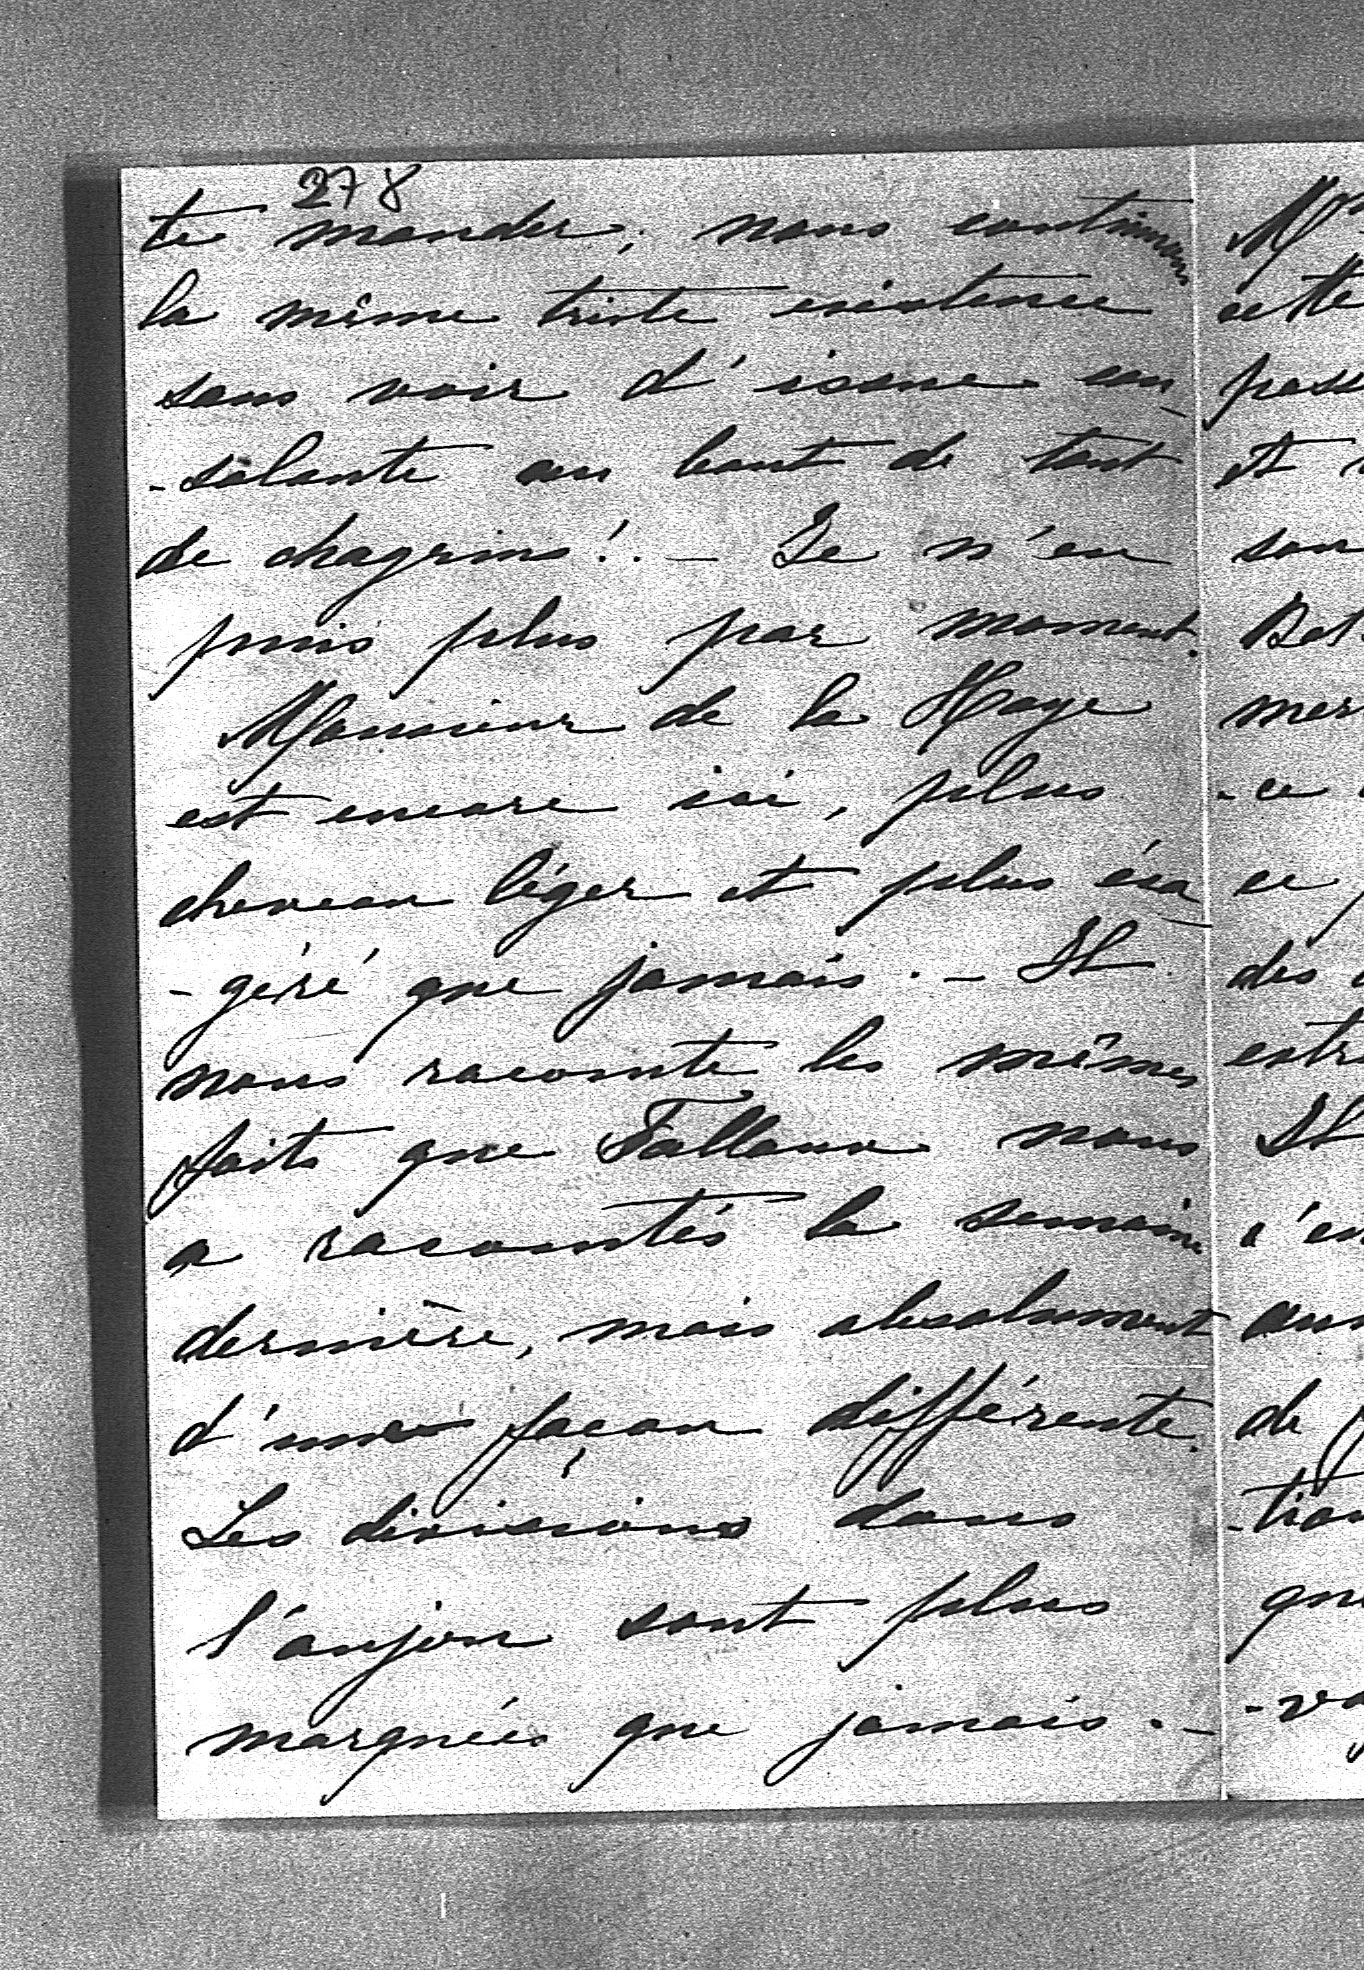 278
te mander; nous continuons
la même triste existence
sans voir d'issue con-
-solante au bout de tant
de chagrins!. - Je n'en
puis plus par moment.
Monsieur de la Haye
est encore ici, plus
cheveau léger et plus exa-
-géré que jamais. - Il
nous raconte les mêmes
faits que Falloux nous
a racontés la semaine
dernière, mais absolument
d'une façon différente.
Les divisions dans
l'anjou sont plus
marquées que jamais. -
cette
et
son
mer
-ce
ce
des
Il
de